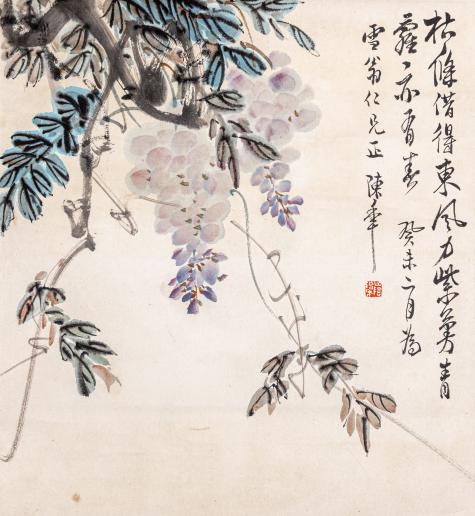 枯條借得東風力紫萼青
蘿亦有春 癸未二月為
雪翁仁兄正 陳年